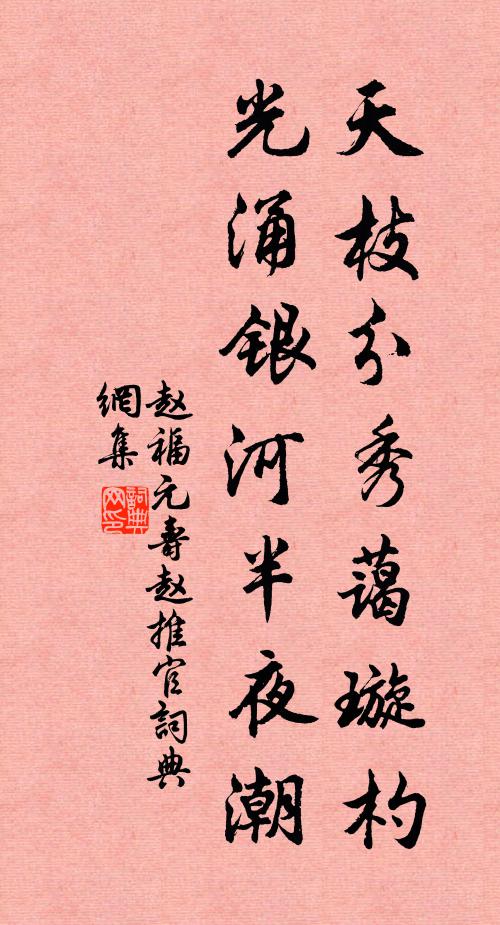 天枝分秀蔼璇杓
光涌银河半夜潮
赵福元寿赵推官詞典
網集
詞典
网印